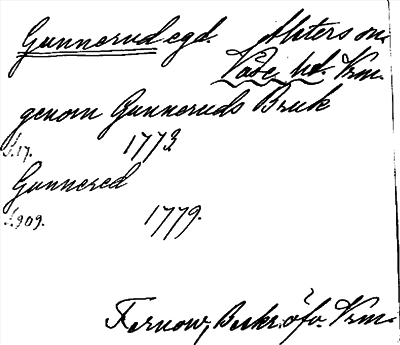 Gunnerud egd. Alsters sn.
Väse hd. Vrm.
genom Gunneruds Bruk
s. 17. 1773.
Gunnered
s. 909. 1779.
Fernow, Beskr. öfv. Vrm.